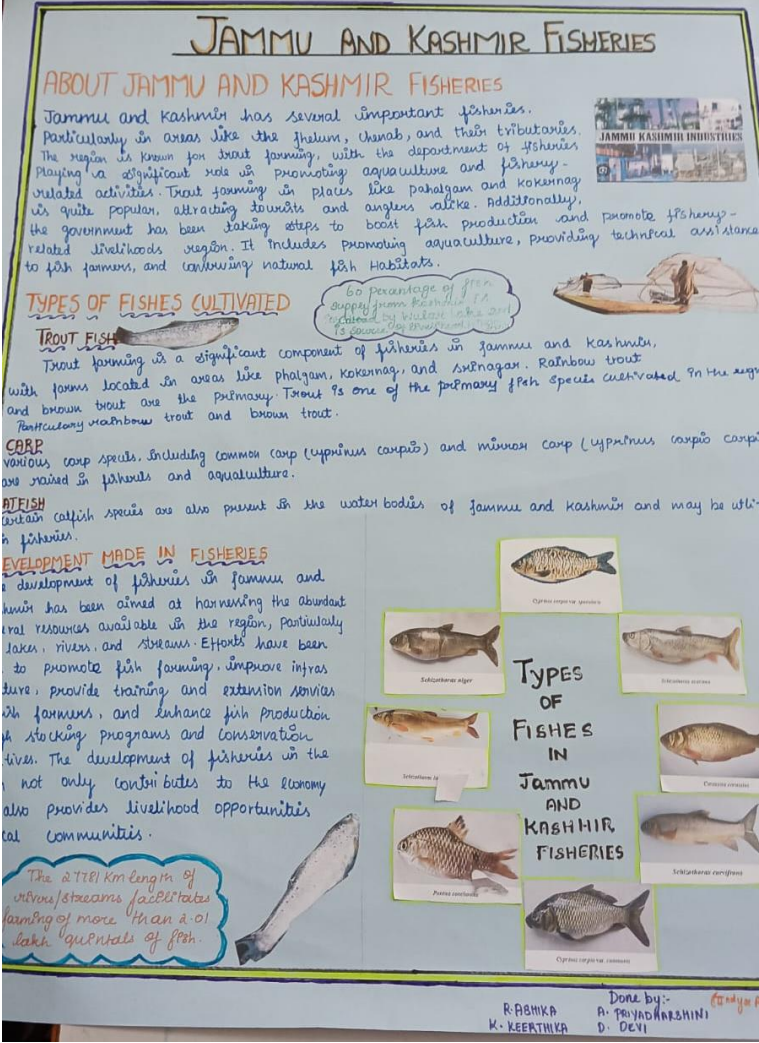 JAMMU AND KASHMIR FISHERIES
ABOUT JAMMU AND KASHMIR FISHERIES
Jammu and Kashmir has several important fisheries.
Particularly in areas like the Jhelum, Chenab, and their tributaries.
The region is known for trout farming, with the department of fisheries
Playing a significant role in promoting aquaculture and fishery-
related activities. Trout farming in places like pahalgam and kokernag
is quite popular, attracting tourists and anglers alike. Additionally,
the government has been taking steps to boost fish production and promote fishery-
related livelihoods region. It includes promoting aquaculture, providing technical assistance
to fish farmers, and conserving natural fish Habitats.
JAMMU KASHMIR INDUSTRIES
TYPES OF FISHES CULTIVATED
60 percentage of fish
supply from Kashmir is
by Wular Lake and
is source of
TROUT FISH
Trout farming is a significant component of fisheries in Jammu and Kashmir,
with farms located in areas like Phalgam, Kokernag, and srinagar. Rainbow trout
and brown trout are the primary. Trout is one of the primary fish species cultivated in the regi
Particulary rainbow trout and brown trout.
CARP
various carp specils, including common carp (cyprinus carpio) and mirror carp (cyprinus carpio carpi
are raised in fisheries and aqualculture.
ATFISH
ertain catfish species are also present in the water bodies of Jammu and Kashmir and may be utli-
n fisheries.
EVELOPMENT MADE IN FISHERIES
e development of fisheries in Jammu and
hmir has been aimed at harnessing the abundant
ral resources available in the region, particularly
lakes, rivers, and streams. Efforts have been
to promote fish farming, improve infras
ture, provide training and extension services
ish farmers, and enhance fish production
h stocking programs and conservation
tives. The development of fisheries in the
not only contributes to the economy
also provides livelihood opportunities
cal communities.
The 27781 Km length of
rivers/streams facilitates
farming of more than 2.01
lakh quintals of fish.
Cyprinus carpio var.
Schizothorax niger
TYPES
OF
FISHES
IN
Jammu
AND
KASHMIR
FISHERIES
Schizothorax curvifrons
Cyprinus carpio var. communis
Done by:-
R. ABHIKA A. PRIYADHARSHINI
K. KEERTHIKA D. DEVI